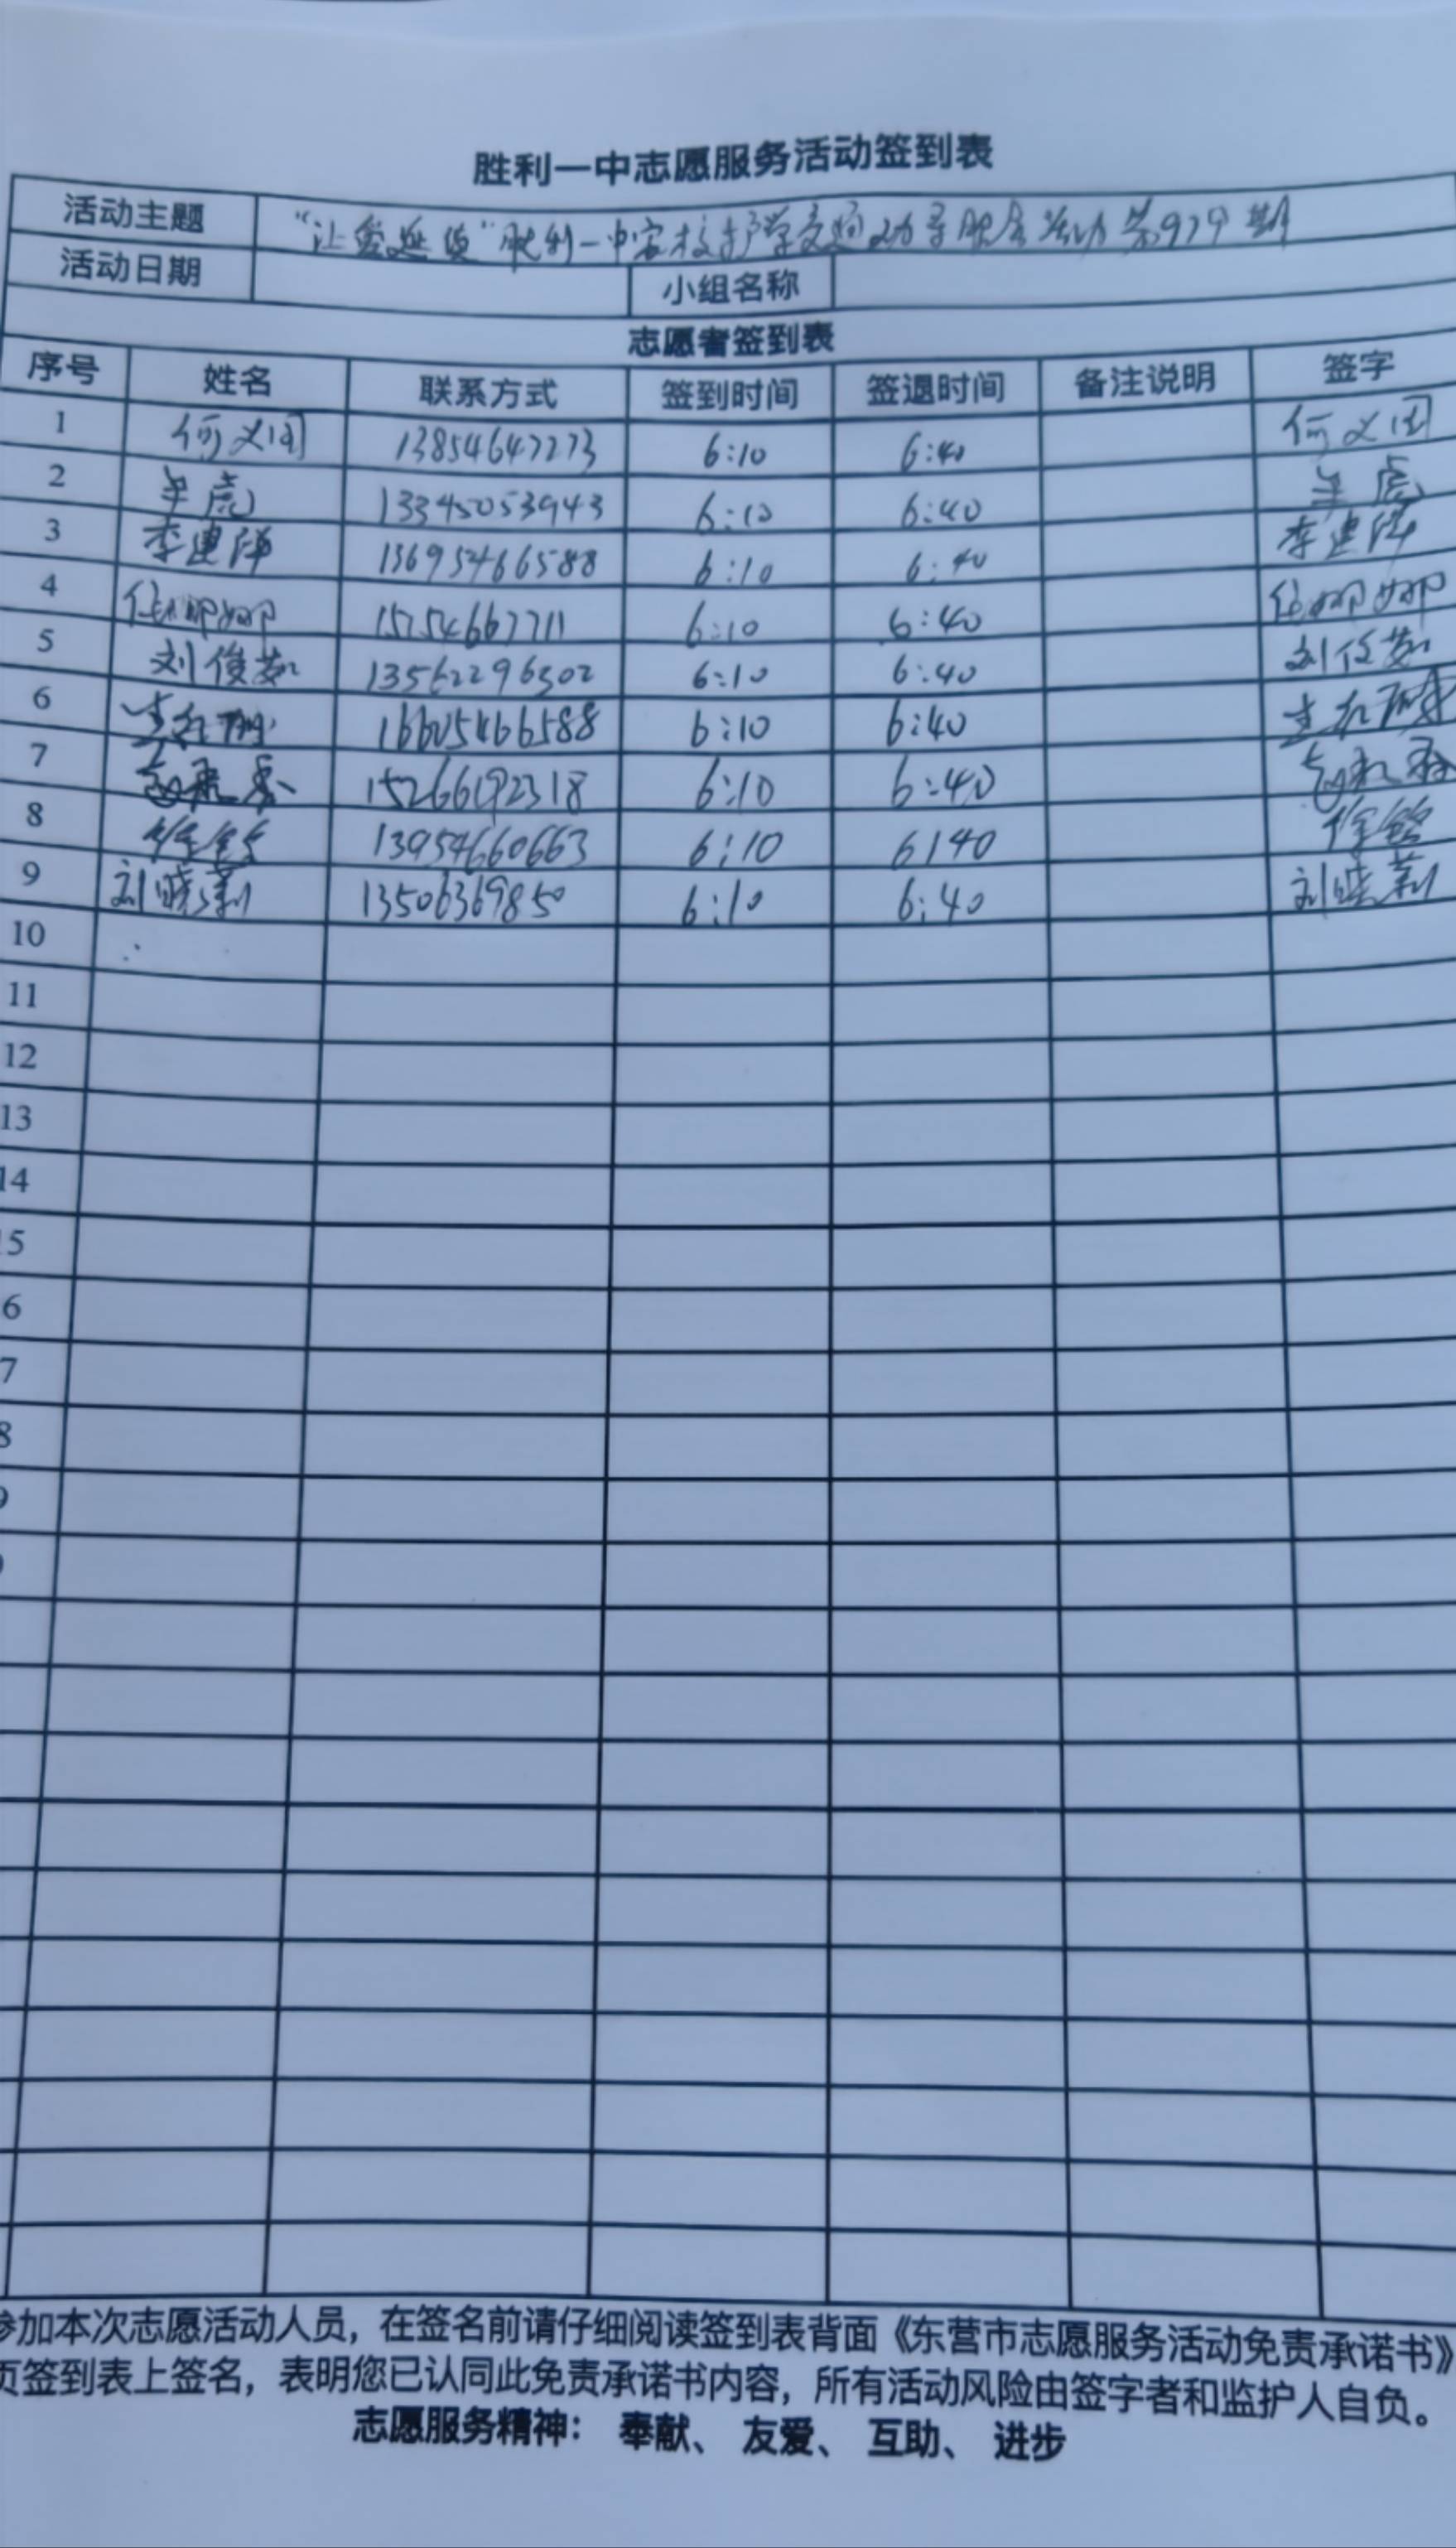 胜利一中志愿服务活动签到表
活动主题 "让爱延续"胜利一中家校护学交通劝导服务活动第979期
活动日期 小组名称
志愿者签到表
序号 姓名 联系方式 签到时间 签退时间 备注说明 签字
1 何义国 13854647273 6:10 6:40 何义国
2 牟虎 13345053943 6:10 6:40 牟虎
3 李建 13695466588 6:10 6:40 李建
4 任娜娜 15254667711 6:10 6:40 任娜娜
5 刘俊茹 13562296502 6:10 6:40 刘俊茹
6 16605466588 6:10 6:40
7 15266192318 6:10 6:40
8 徐 13954660663 6:10 6:40 徐
9 刘晓莉 13506369850 6:10 6:40 刘晓莉
10
11
12
13
14
15
6
7
8
9
参加本次志愿活动人员，在签名前请仔细阅读签到表背面《东营市志愿服务活动免责承诺书》
页签到表上签名，表明您已认同此免责承诺书内容，所有活动风险由签字者和监护人自负。
志愿服务精神： 奉献、 友爱、 互助、 进步